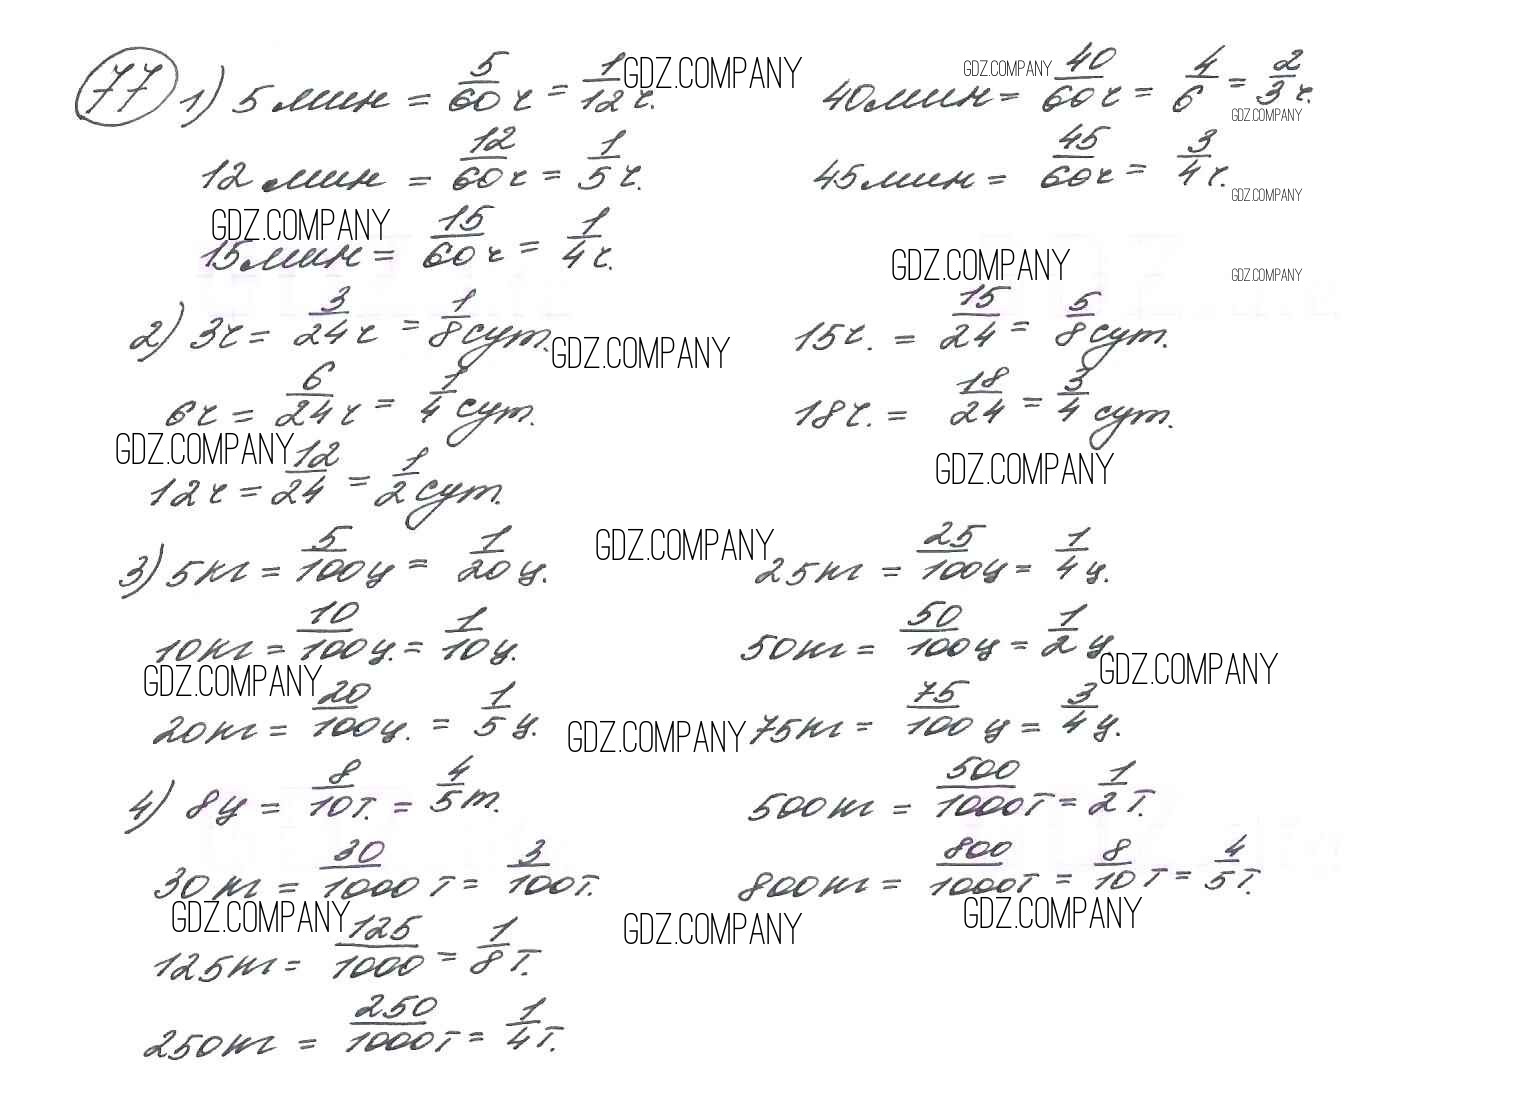 77 1) 5 мин = 5/60 ч = 1/12 ч. GDZ.COMPANY 40мин = GDZ.COMPANY 40/60 ч = 4/6 = 2/3 ч.
GDZ.COMPANY
12 мин = 12/60 ч = 1/5 ч. 45мин = 45/60 ч = 3/4 ч.
GDZ.COMPANY
GDZ.COMPANY
15мин = 15/60 ч = 1/4 ч.
GDZ.COMPANY GDZ.COMPANY
2) 3ч = 3/24 ч = 1/8 сут. GDZ.COMPANY 15ч. = 15/24 = 5/8 сут.
6ч = 6/24 ч = 1/4 сут. 18ч. = 18/24 = 3/4 сут.
GDZ.COMPANY GDZ.COMPANY
12ч = 12/24 = 1/2 сут.
GDZ.COMPANY
3) 5кг = 5/100 ц = 1/20 ц. 25кг = 25/100 ц = 1/4 ц.
10кг = 10/100 ц. = 1/10 ц. 50кг = 50/100 ц = 1/2 ц.
GDZ.COMPANY GDZ.COMPANY
20кг = 20/100 ц. = 1/5 ц. GDZ.COMPANY 75кг = 75/100 ц = 3/4 ц.
4) 8ц = 8/10 т. = 4/5 т. 500кг = 500/1000 т = 1/2 т.
30кг = 30/1000 т = 3/100 т. 800кг = 800/1000 т = 8/10 т = 4/5 т.
GDZ.COMPANY GDZ.COMPANY GDZ.COMPANY
125кг = 125/1000 = 1/8 т.
250кг = 250/1000 т = 1/4 т.